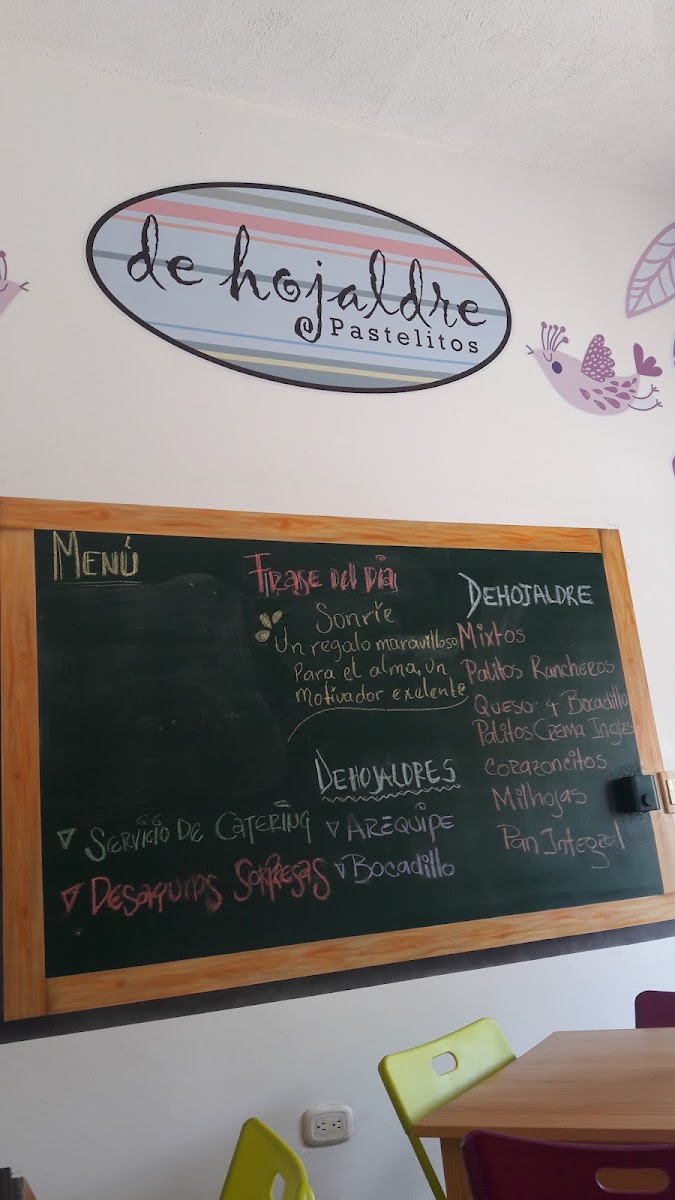 de hojaldre
Pastelitos
MENÚ
FRASE DEL DÍA
Sonríe
Un regalo maravilloso
Para el alma, un
motivador exelente
DEHOJALDRES
▽ SERVICIO DE CATERING
▽ DESAYUNOS SORPRESAS
▽ AREQUIPE
▽ Bocadillo
DEHOJALDRE
Mixtos
Palitos Rancheros
Queso y Bocadillo
Palitos Crema Ingles
Corazoncitos
Milhojas
Pan Integral